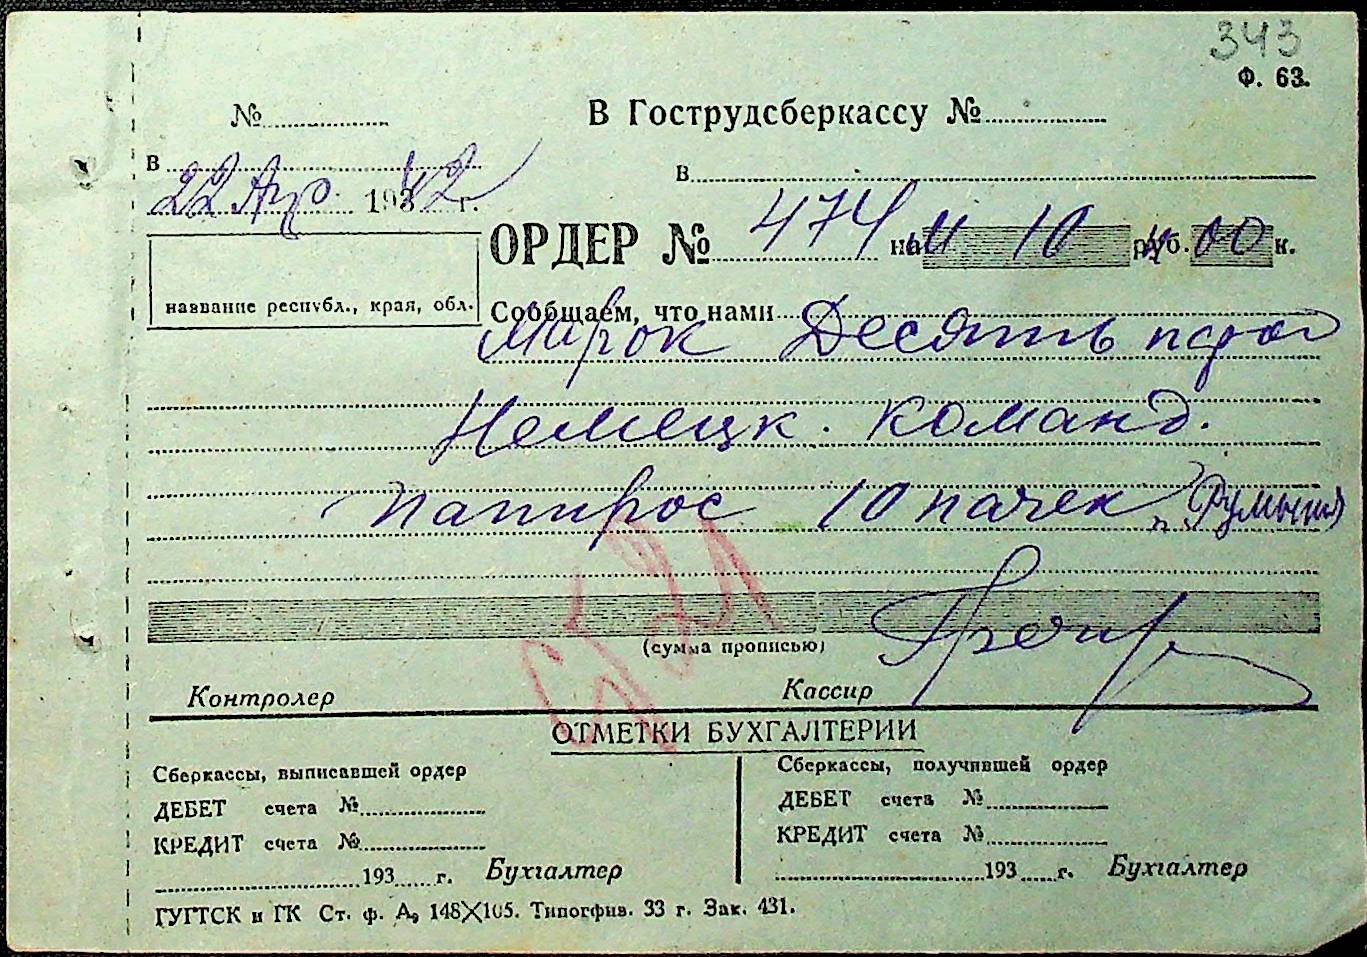 343
Ф. 63.
№
В Гострудсберкассу №
в
в
22 Апр. 1942 г.
ОРДЕР № 474 на М 10 руб. 00 к.
название республ., края, обл.
Сообщаем, что нами
Марок Десять
Немецк. команд.
Папирос 10 пачек
(сумма прописью)
Контролер
Кассир
ОТМЕТКИ БУХГАЛТЕРИИ
Сберкассы, выписавшей ордер
ДЕБЕТ счета №
КРЕДИТ счета №
193 г. Бухгалтер
Сберкассы, получившей ордер
ДЕБЕТ счета №
КРЕДИТ счета №
193 г. Бухгалтер
ГУГТСК и ГК Ст. ф. А, 148X105. Типогфив. 33 г. Зак. 431.